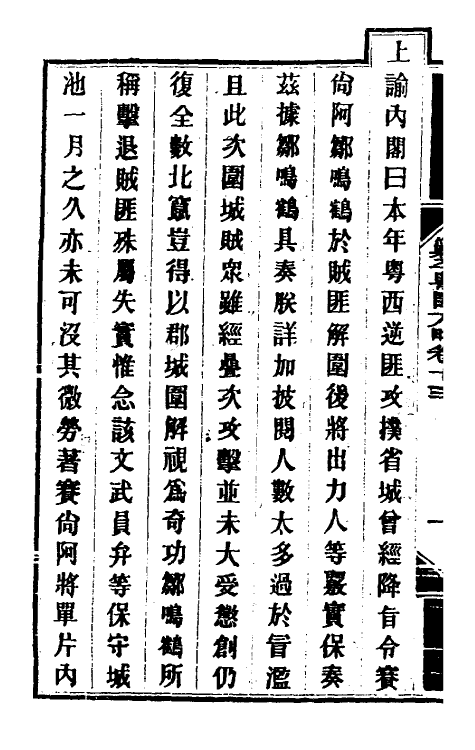 上諭內閣曰本年粵西逆匪攻撲省城曾經降旨令賽
尙阿鄒鳴鶴於賊匪解圍後將出力人等覈實保奏
茲據鄒鳴鶴具奏朕詳加披閱人數太多過於冒濫
且此次圍城賊眾雖經疊次攻擊並未大受懲創仍
復全數北竄豈得以郡城圍解視爲奇功鄒鳴鶴所
稱擊退賊匪殊屬失實惟念該文武員弁等保守城
池一月之久亦未可沒其微勞著賽尙阿將單片內
卷十三
一